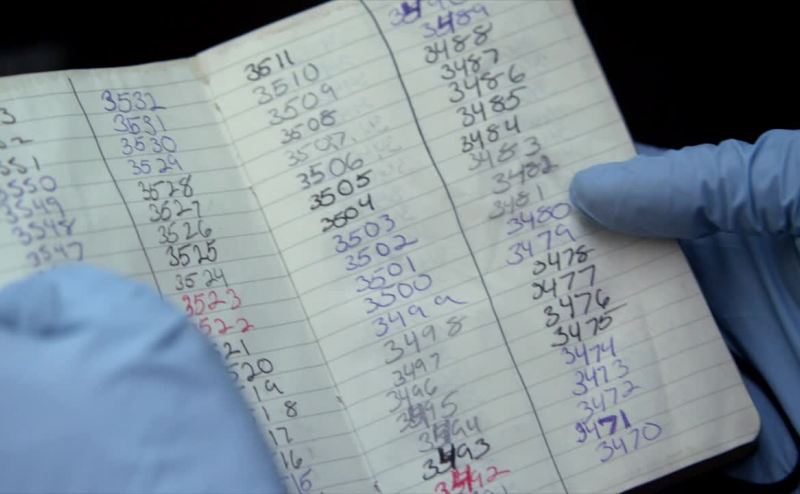 3
551
3550
3549
3548
3547
3532
3531
3530
3529
3528
3527
3526
3525
3524
3523
3522
21
520
19
18
17
16
15
3511
3510
3509
3508
3507
3506
3505
3504
3503
3502
3501
3500
3499
3498
3497
3496
3495
3494
3493
3492
3489
3488
3487
3486
3485
3484
3483
3482
3481
3480
3479
3478
3477
3476
3475
3474
3473
3472
3471
3470